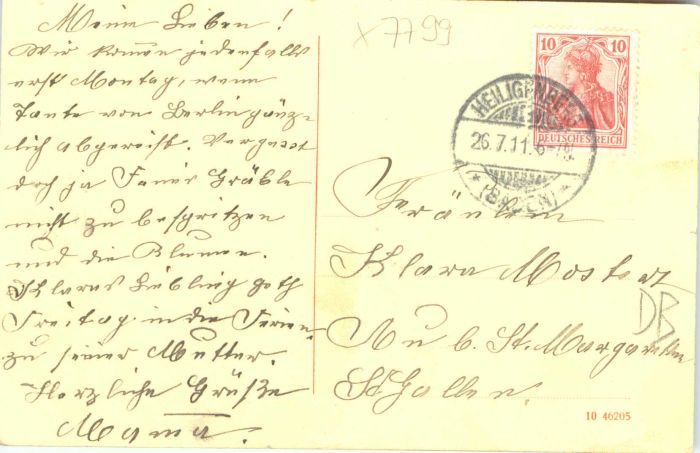 Meine Lieben!
Wir komen jedenfalls
erst Montag, wenn
Tante von Berlin gänz-
lich abgereist. Vergesst
doch ja Gräble
nicht zu bespritzen
und die Blumen.
Klaras Liebling geht
Freitag in die Ferien
zu seiner Mutter.
Herzliche Grüsze
Mama.
x 7799
10 10
DEUTSCHES REICH
HEILIGENBERG
26.7.11. 6-7N.
*(BADEN)*
Fräulein
Klara Mostert
Au b. St. Margarethen
St. Gallen.
DB
10 46205